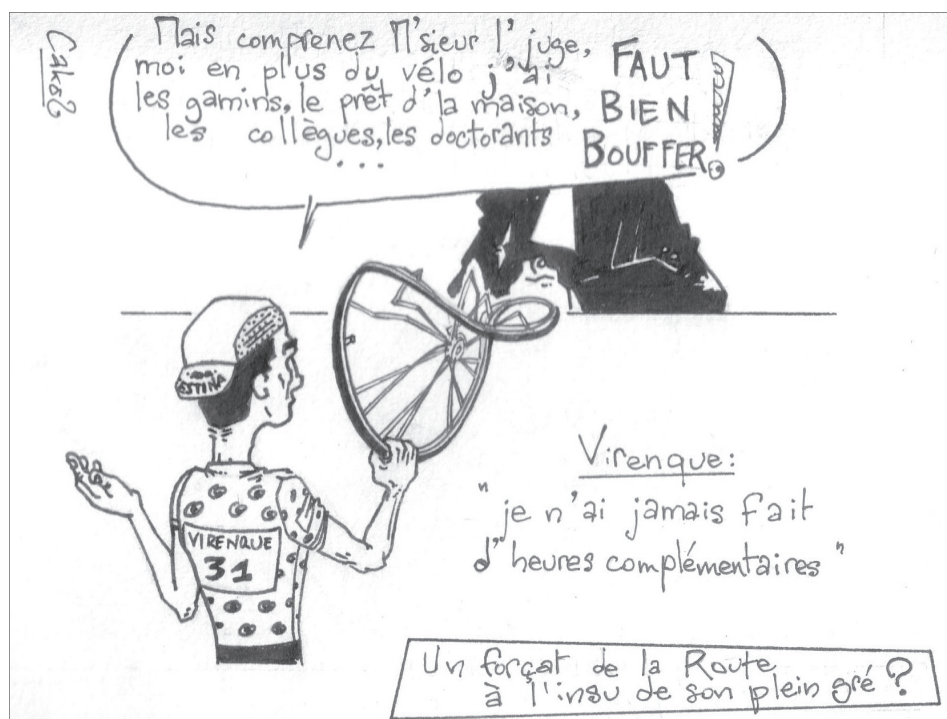 Caks2
Mais comprenez M'sieur l'juge,
moi en plus du vélo j'ai
les gamins, le prêt d'la maison,
les collègues, les doctorants
...
FAUT
BIEN
BOUFFER!
ESTINA
VIRENQUE
31
Virenque:
"je n'ai jamais fait
d'heures complémentaires"
Un forçat de la Route
à l'insu de son plein gré?